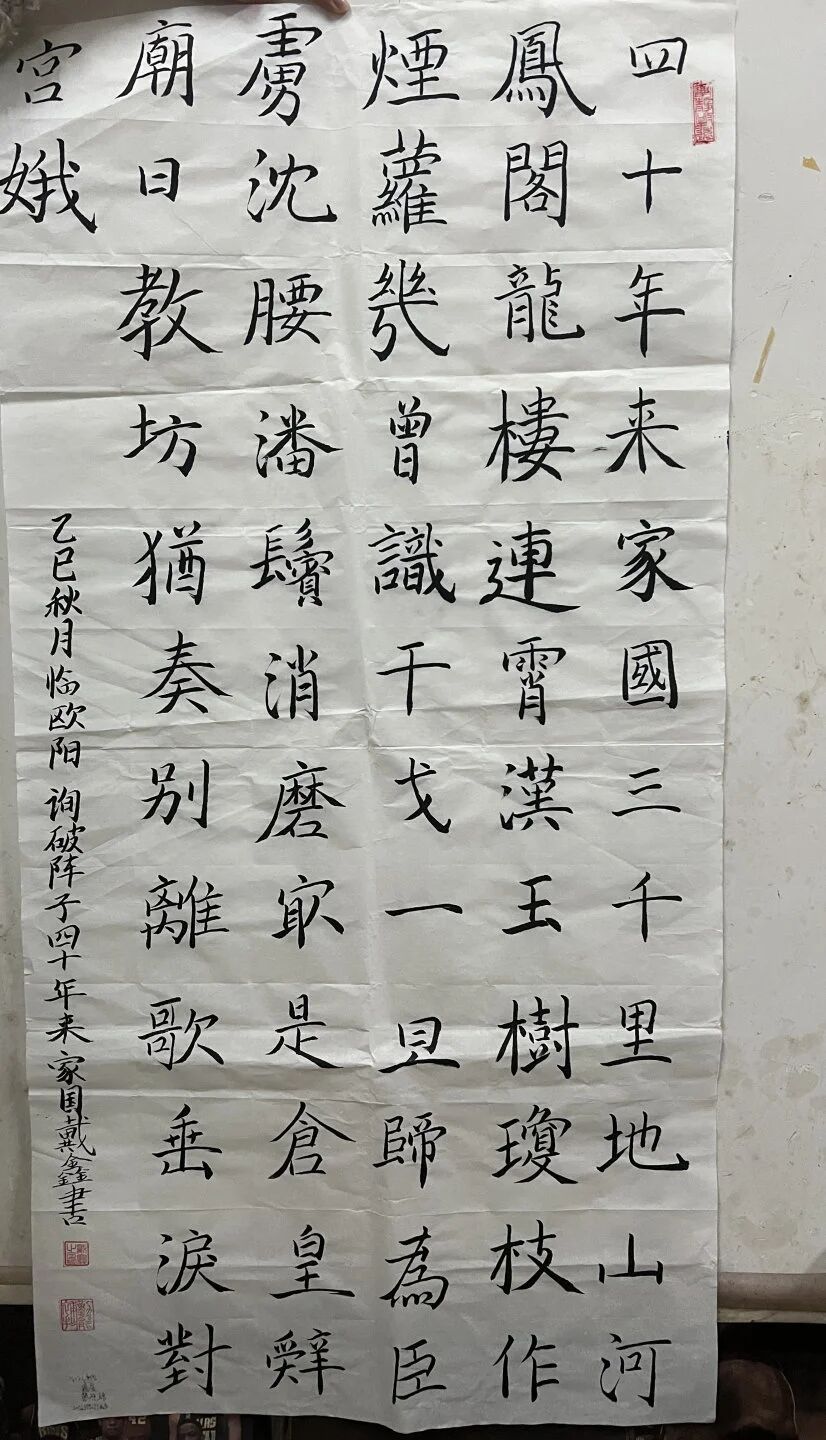 四十年来家國三千里地山河
鳳閣龍樓連霄漢玉樹瓊枝作
煙蘿幾曾識干戈一旦歸為臣
虜沈腰潘鬢消磨㝡是倉皇辭
廟日教坊猶奏别離歌垂淚對
宮娥
乙巳秋月临欧阳询破阵子四十年来家国戴鑫書